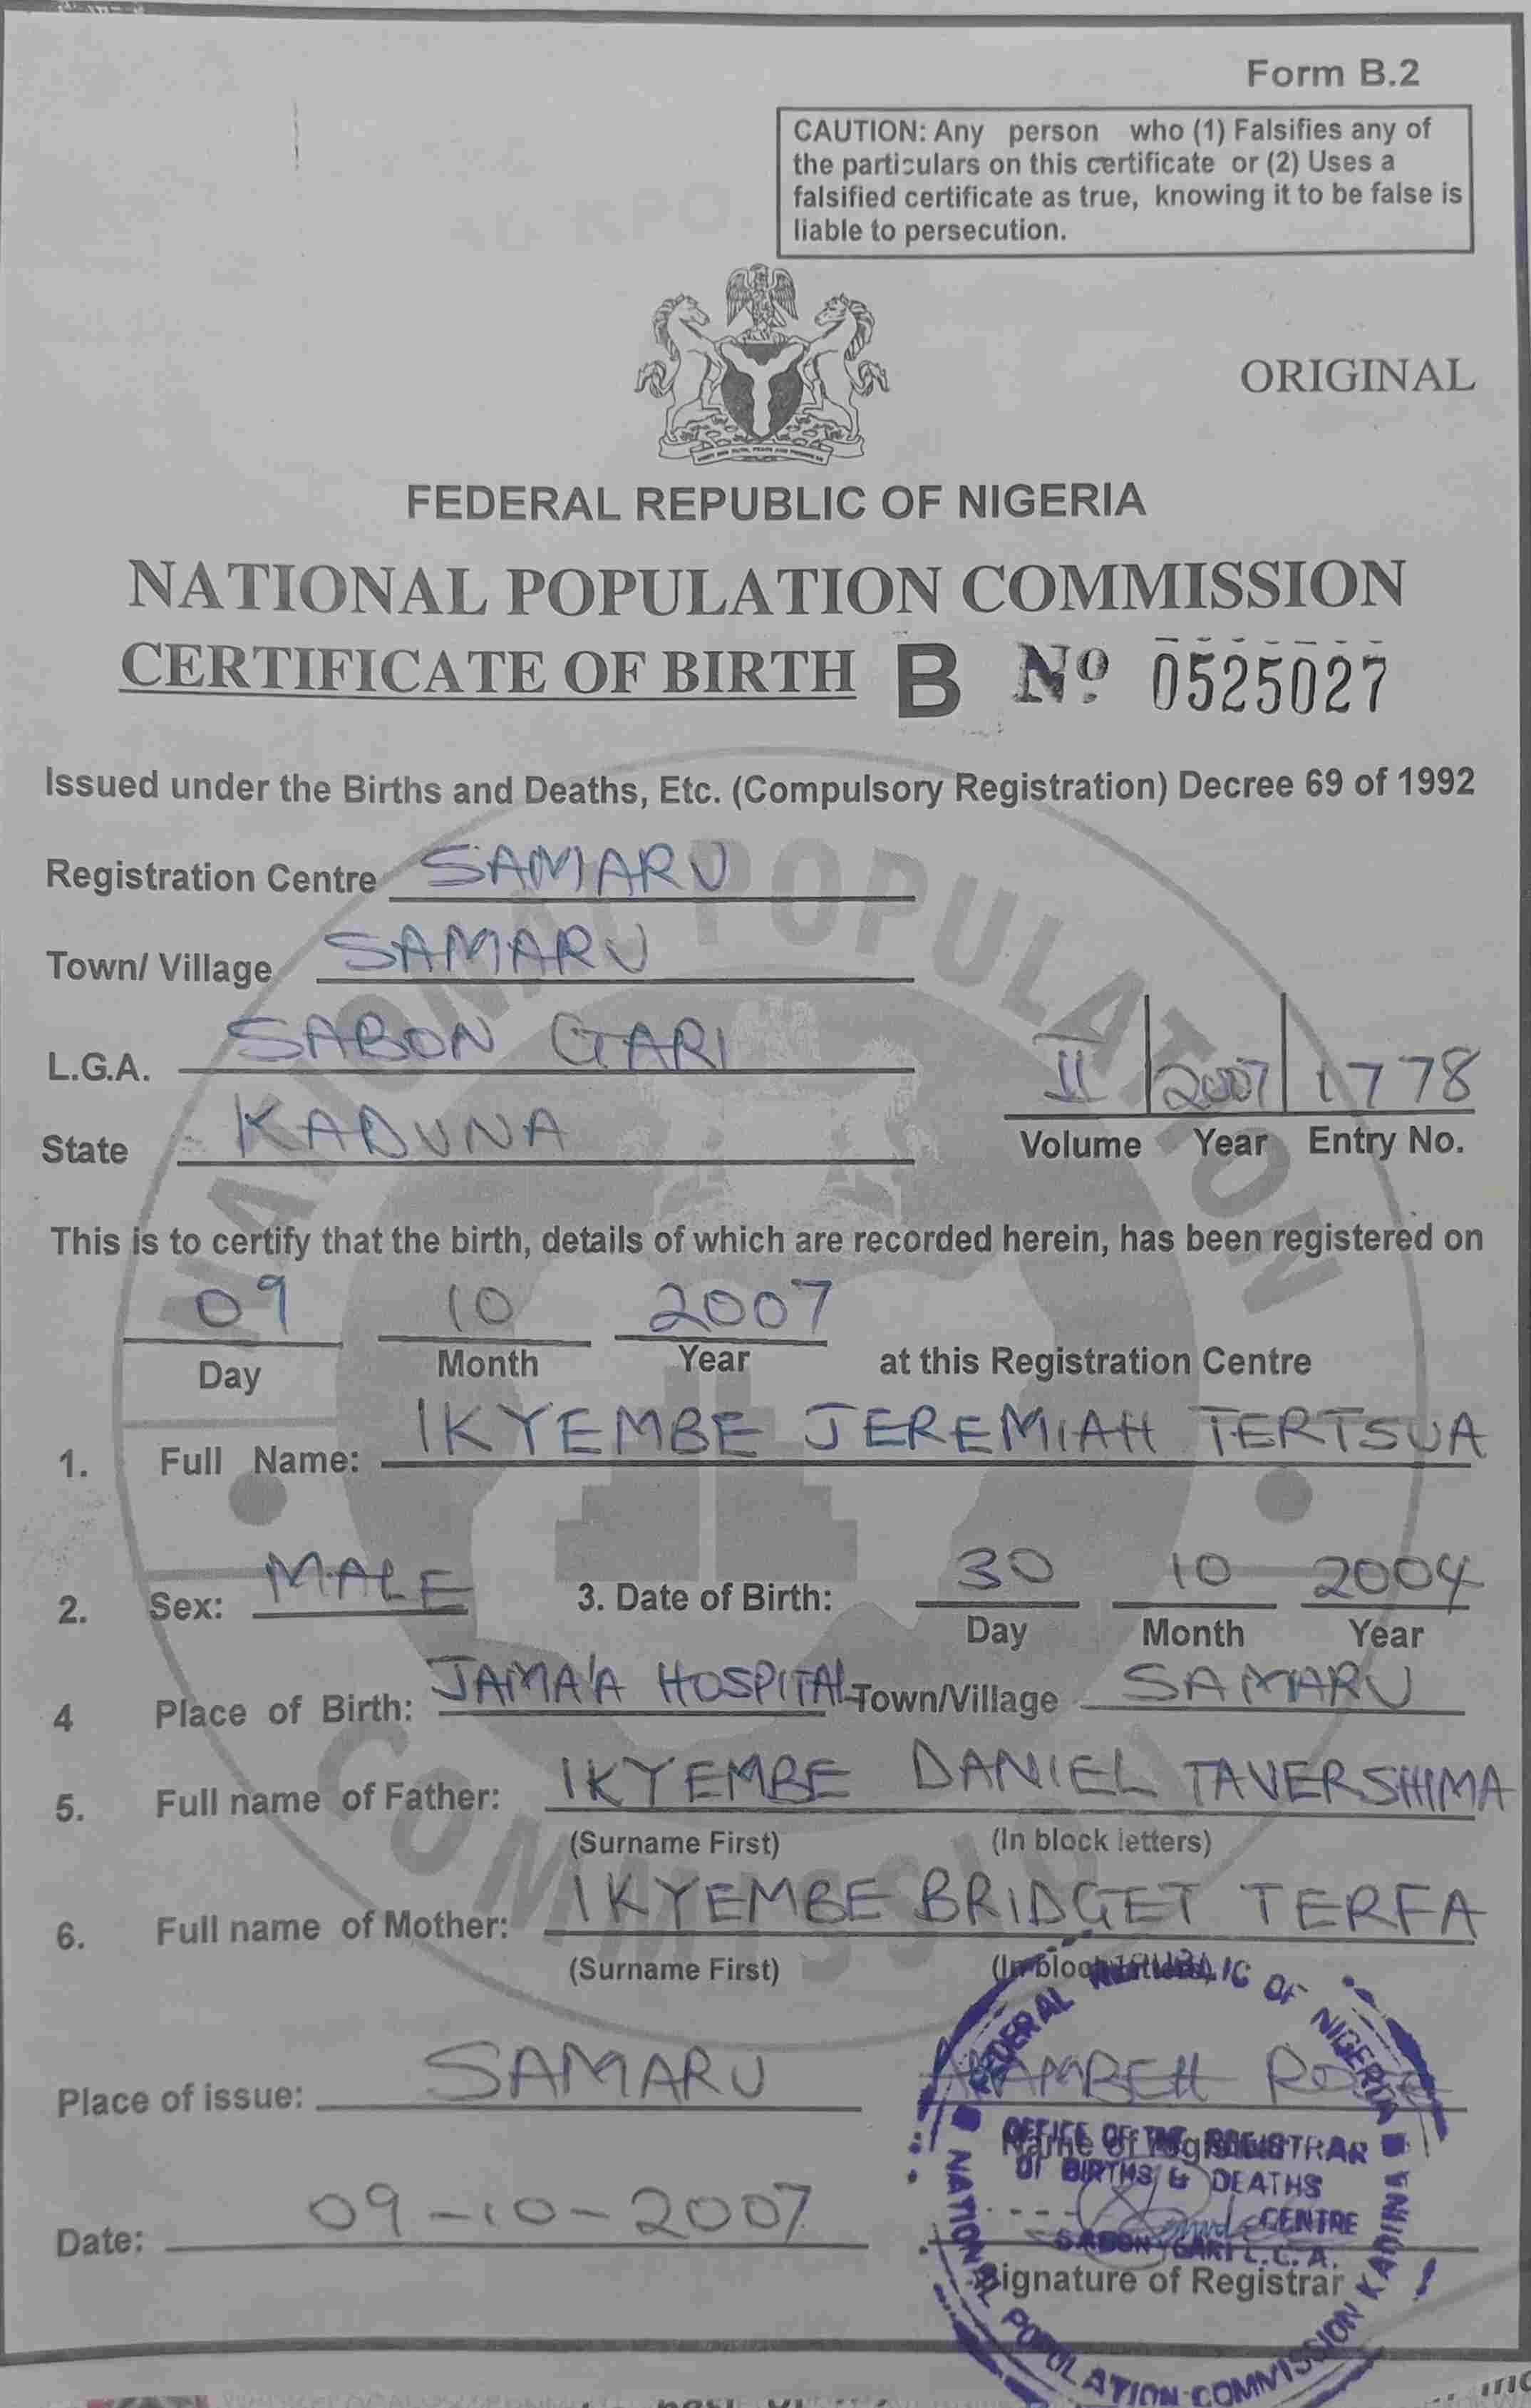 Form B.2
CAUTION: Any person who (1) Falsifies any of
the particulars on this certificate or (2) Uses a
falsified certificate as true, knowing it to be false is
liable to persecution.
ORIGINAL
FEDERAL REPUBLIC OF NIGERIA
NATIONAL POPULATION COMMISSION
CERTIFICATE OF BIRTH B Nº 0525027
Issued under the Births and Deaths, Etc. (Compulsory Registration) Decree 69 of 1992
Registration Centre SAMARU
Town/ Village SAMARU
L.G.A. SABON GARI
State KADUNA
II 2007 1778
Volume Year Entry No.
This is to certify that the birth, details of which are recorded herein, has been registered on
09 10 2007
Day Month Year at this Registration Centre
1. Full Name: IKYEMBE JEREMIAH TERTSUA
2. Sex: MALE 3. Date of Birth: 30 10 2004
Day Month Year
4 Place of Birth: JAMA'A HOSPITAL Town/Village SAMARU
5. Full name of Father: IKYEMBE DANIEL TAVERSHIMA
(Surname First) (In block letters)
6. Full name of Mother: IKYEMBE BRIDGET TERFA
(Surname First) (In block letters)
Place of issue: SAMARU
Name of Registrar
Date: 09-10-2007
Signature of Registrar
FEDERAL REPUBLIC OF NIGERIA
OFFICE OF THE REGISTRAR
OF BIRTHS & DEATHS
CENTRE
SABON GARI L.G.A.
NATIONAL POPULATION COMMISSION
NATIONAL POPULATION COMMISSION